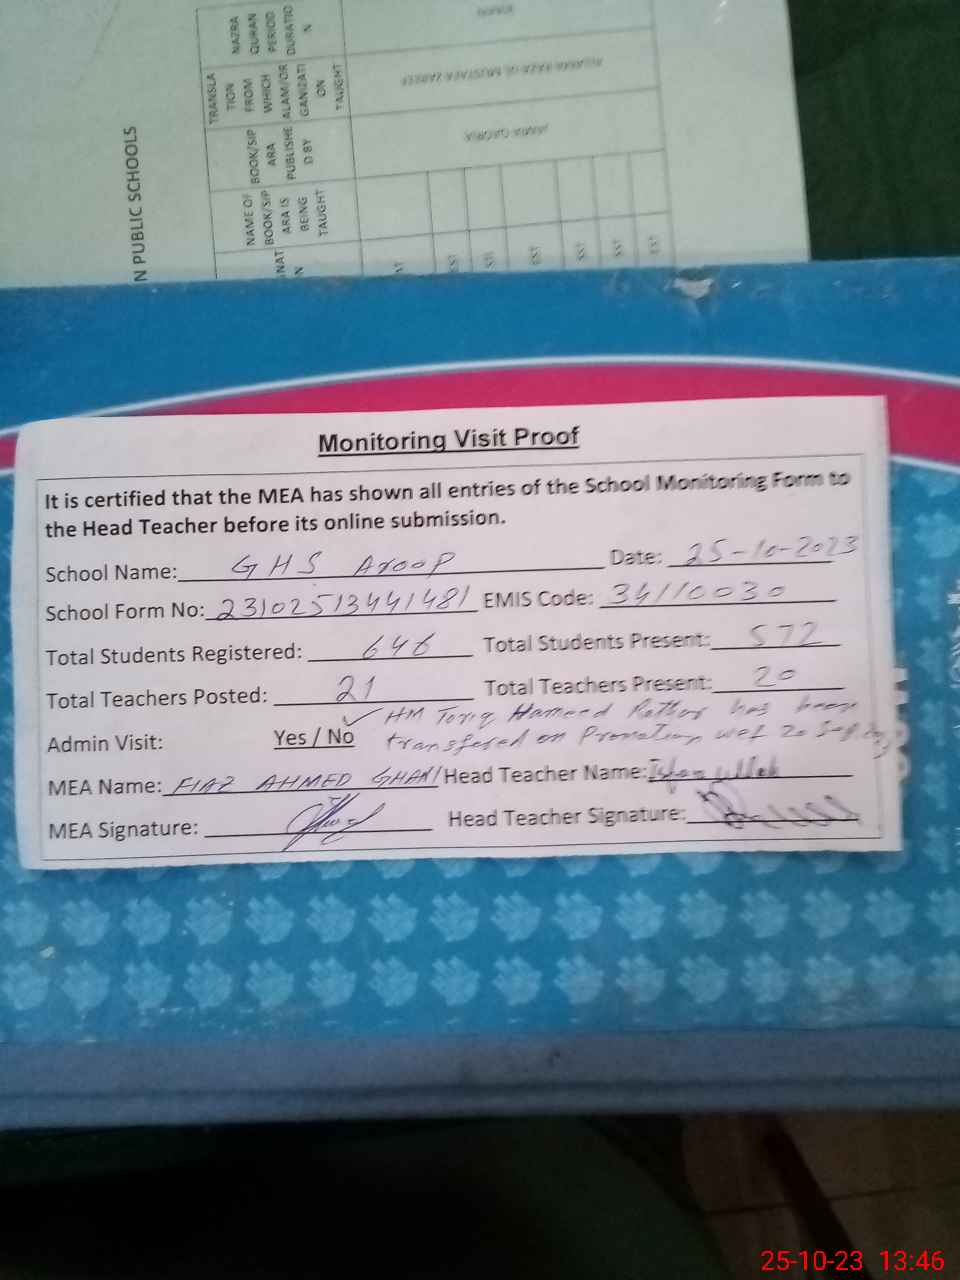 N PUBLIC SCHOOLS
NAZRA QURAN PERIOD DURATIO N
TRANSLA TION FROM WHICH ALAM/OR GANIZATI ON TAUGHT
BOOK/SIP ARA PUBLISHE D BY
NAME OF BOOK/SIP ARA IS BEING TAUGHT
NAT N
JAMIA QADRIA
EST
SST
SST
EST
Monitoring Visit Proof
It is certified that the MEA has shown all entries of the School Monitoring Form to
the Head Teacher before its online submission.
School Name: GHS Aroop Date: 25-10-2023
School Form No: 23102513441481 EMIS Code: 34110030
Total Students Registered: 646 Total Students Present: 572
Total Teachers Posted: 21 Total Teachers Present: 20
HM Tariq Hameed has been
Admin Visit: Yes / No ✓ transfered on Promotion wef 20
MEA Name: FIAZ AHMED GHANI Head Teacher Name:
MEA Signature: Head Teacher Signature:
25-10-23 13:46